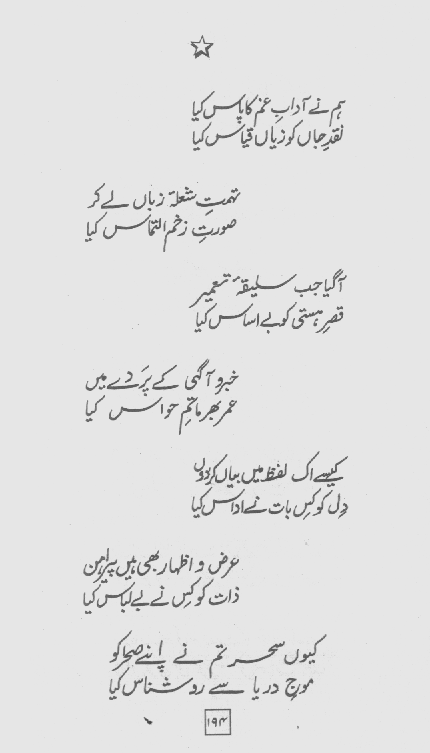 ہم نے آدابِ غم کا پاس کیا
نقدِ جاں کو زیاں قیاس کیا
تہمتِ شعلۂ زباں لے کر
صورتِ زخم التماس کیا
آگیا جب سلیقۂ تعمیر
قصرِ ہستی کو بے اساس کیا
خبر و آگہی کے پَردے میں
عمر بھر ماتمِ حواس کیا
کیسے اک لفظ میں بیاں کردوں
دِل کو کِس بات نے اداس کیا
عرض و اظہار بھی ہیں پیراہن
ذات کو کِس نے بے لباس کیا
کیوں سحر تم نے اپنے صحرا کو
موجِ دریا سے روشناس کیا
۱۹۴